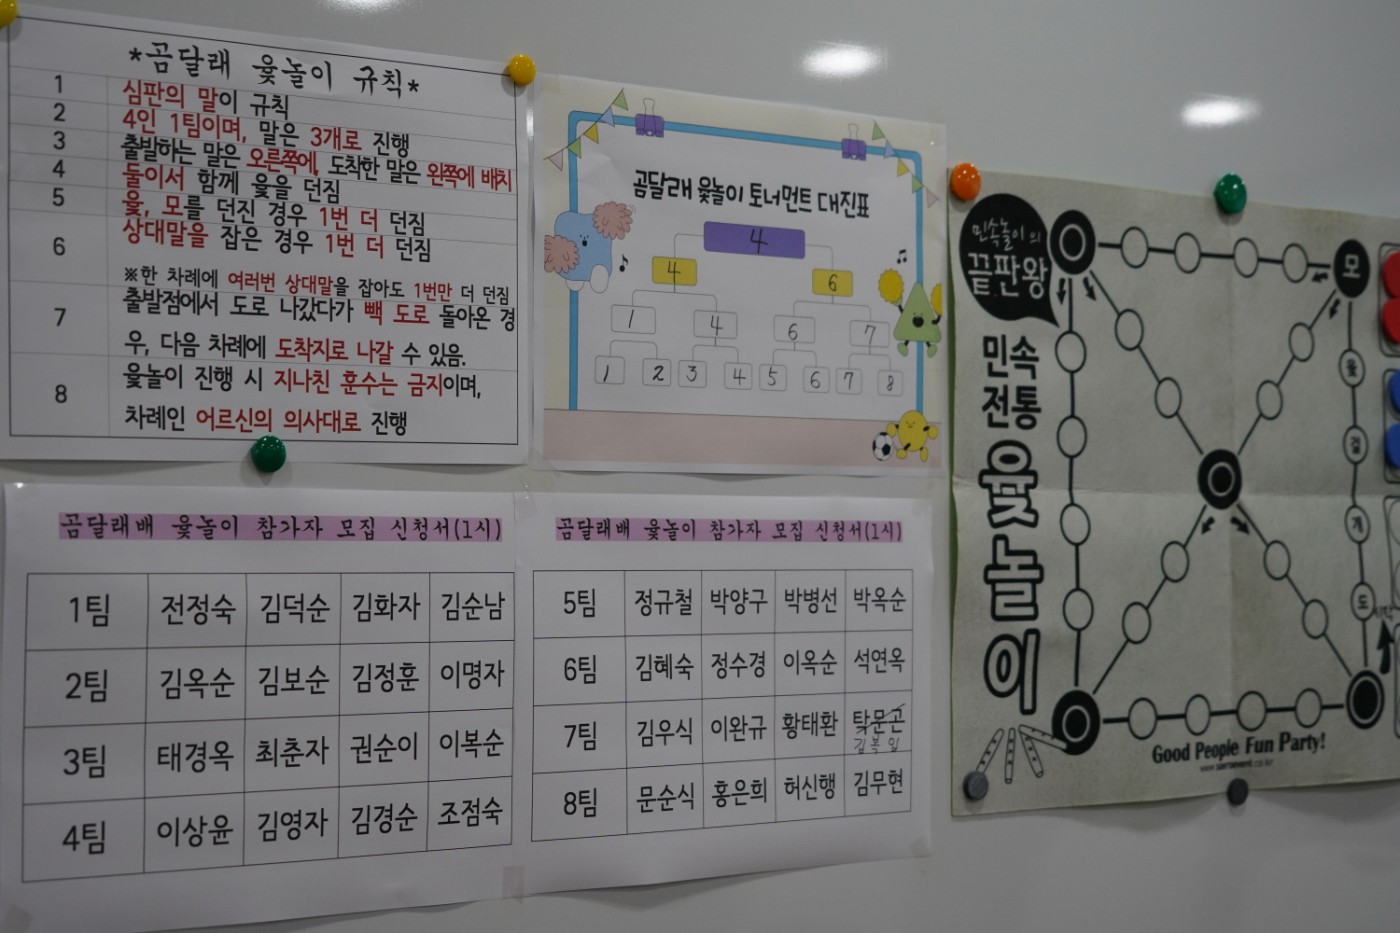 *곰달래 윷놀이 규칙*
1 심판의 말이 규칙
2 4인 1팀이며, 말은 3개로 진행
3 출발하는 말은 오른쪽에, 도착한 말은 왼쪽에 배치
4 둘이서 함께 윷을 던짐
5 윷, 모를 던진 경우 1번 더 던짐
6 상대말을 잡은 경우 1번 더 던짐
※한 차례에 여러번 상대말을 잡아도 1번만 더 던짐
7 출발점에서 도로 나갔다가 빽 도로 돌아온 경
우, 다음 차례에 도착지로 나갈 수 있음.
8 윷놀이 진행 시 지나친 훈수는 금지이며,
차례인 어르신의 의사대로 진행
곰달래 윷놀이 토너먼트 대진표
4
4 6
1 4 6 7
1 2 3 4 5 6 7 8
곰달래배 윷놀이 참가자 모집 신청서(1시)
1팀 전정숙 김덕순 김화자 김순남
2팀 김옥순 김보순 김정훈 이명자
3팀 태경옥 최춘자 권순이 이복순
4팀 이상윤 김영자 김경순 조점숙
곰달래배 윷놀이 참가자 모집 신청서(1시)
5팀 정규철 박양구 박병선 박옥순
6팀 김혜숙 정수경 이옥순 석연옥
7팀 김우식 이완규 황태환 탁문곤
김복임
8팀 문순식 홍은희 허신행 김무현
민속놀이의
끝판왕
민속
전통
윷놀이
모
윷
걸
개
도
Good People Fun Party!